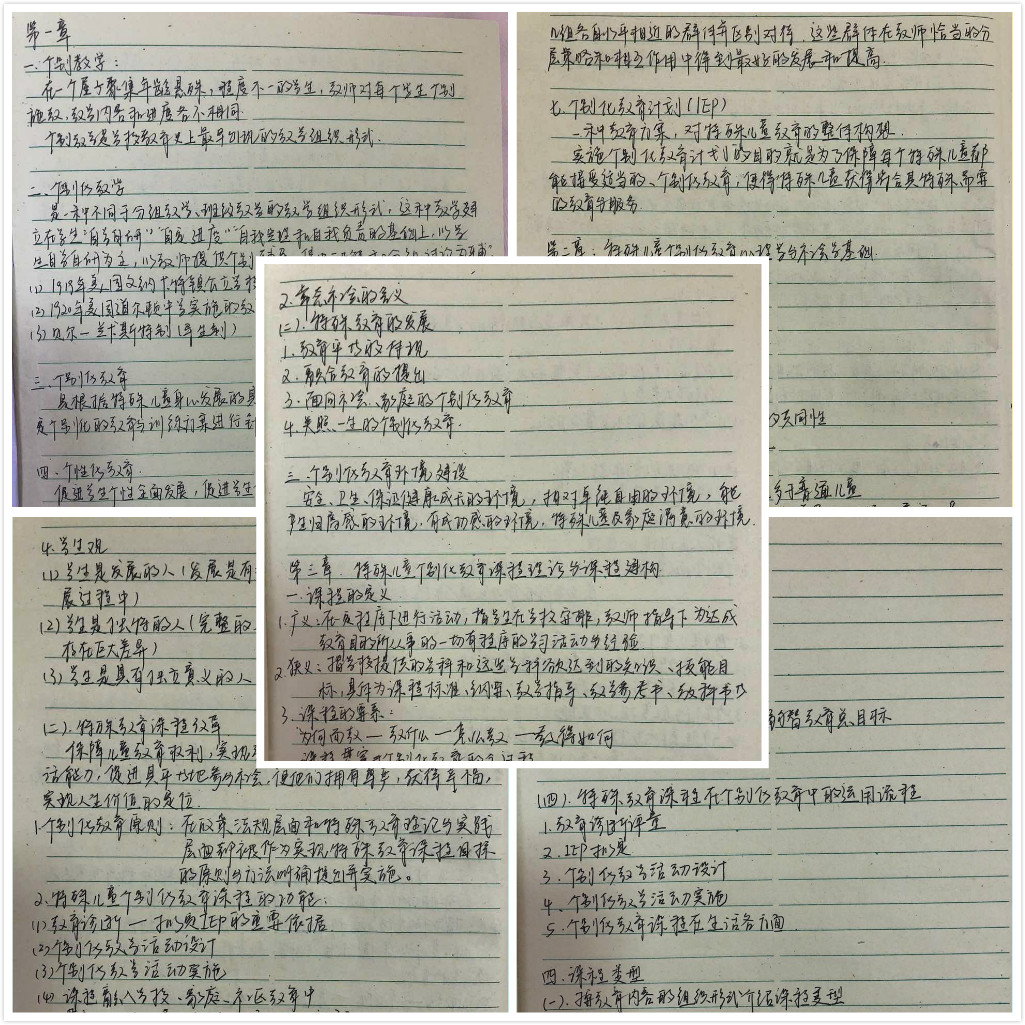 第一章
一.个别教学:
在一个屋子聚集年龄悬殊,程度不一的学生,教师对每个学生个别
施教,教学内容和进度各不相同.
个别教学是学校教育史上最早出现的教学组织形式.
二.个别化教学
是一种不同于分组教学、班级教学的教学组织形式,这种教学建
立在学生"自学自研""自定进度""自我管理和自我负责的基础上,以学
生自学自研为主,以教师提供个别
(1) 1919年美国文纳卡特镇公立学校
(2) 1920年美国道尔顿中学实施的教
(3) 贝尔—兰卡斯特制(导生制)
三.个别化教育
是根据特殊儿童身心发展的
定个别化的教育与训练方案进行
四.个性化教育.
促进学生个性全面发展,促进学生
几组各自水平相近的群体并区别对待.这些群体在教师恰当的分
层策略和相互作用中得到最好的发展和提高.
七.个别化教育计划(IEP)
一种教育方案,对特殊儿童教育的整体构想.
实施个别化教育计划的目的就是为了保障每个特殊儿童都
能接受适当的、个别化教育,使得特殊儿童获得符合其特殊需要
的教育与服务
第二章:特殊儿童个别化教育心理学与社会学基础
的共同性
多于普通儿童
2.常态社会的含义
(二).特殊教育的发展
1.教育平等的体现
2.融合教育的提出
3.面向社会、家庭的个别化教育
4.关照一生的个别化教育.
三.个别化教育环境建设
安全、卫生、保证健康成长的环境,相对单纯自由的环境,能
产生归属感的环境,有成功感的环境,特殊儿童及家庭满意的环境.
第三章.特殊儿童个别化教育课程理论与课程建构
一.课程的定义
1.广义:在一定程序下进行活动,指学生在学校安排,教师指导下为达成
教育目的所从事的一切有程序的学习活动与经验.
2.狭义:指学校提供的学科和这些学科欲达到的知识、技能目
标,具体为课程标准、纲要、教学指导、教学参考书、教科书等
3.课程的要素:
为何而教—教什么—怎么教—教得如何
4.学生观
(1)学生是发展的人(发展是有
展过程中)
(2)学生是独特的人(完整的
存在巨大差异)
(3)学生是具有独立意义的人
(二).特殊教育课程改革
保障儿童教育权利,实现
活能力,促进其平等地参与社会,使他们拥有尊严,获得幸福,
实现人生价值的定位.
1.个别化教育原则:在政策法规层面和特殊教育理论与实践
层面都被作为实现特殊教育课程目标
的原则与方法明确提出并实施。
2.特殊儿童个别化教育课程的功能:
(1)教育诊断—拟定IEP的重要依据
(2)个别化教学活动设计
(3)个别化教学活动实施
(4)课程融入学校、家庭、社区教育中
弱智教育总目标
(四).特殊教育课程在个别化教育中的运用流程
1.教育诊断评量
2.IEP拟定
3.个别化教学活动设计
4.个别化教学活动实施
5.个别化教育课程在生活各方面
四.课程类型
(一).按教育内容的组织形式介绍课程类型